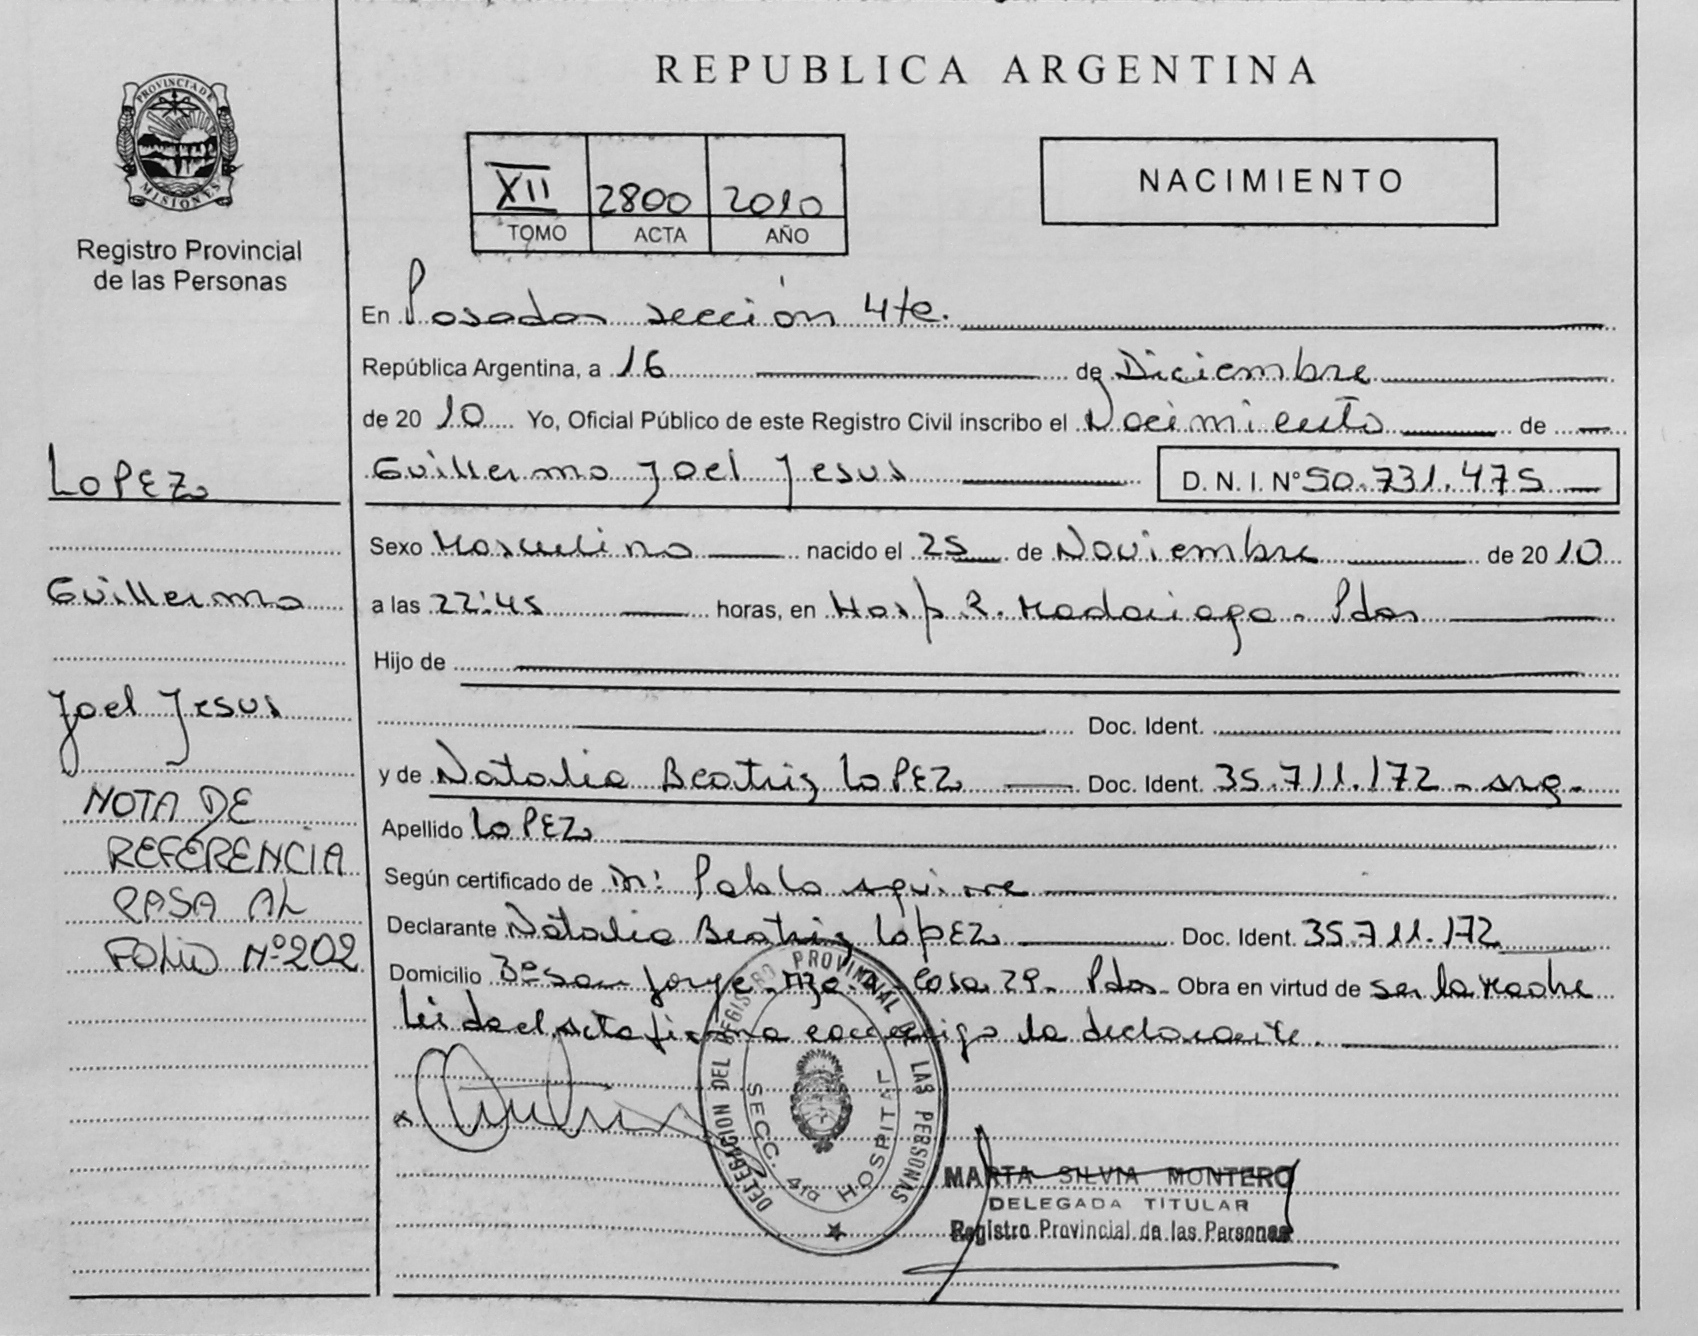 REPUBLICA ARGENTINA
PROVINCIA DE MISIONES
Registro Provincial
de las Personas
XII 2800 2010
TOMO ACTA AÑO
NACIMIENTO
En Posadas sección 4ta.
República Argentina, a 16 de Diciembre
de 2010 Yo, Oficial Público de este Registro Civil inscribo el Nacimiento de
Guillermo Joel Jesus D.N.I. Nº 50.731.475
Sexo Masculino nacido el 25 de Noviembre de 2010
a las 22:45 horas, en Hosp R. Madariaga - Pdas
Hijo de
Doc. Ident.
y de Natalia Beatriz LOPEZ Doc. Ident. 35.711.172 - arg.
Apellido LOPEZ
Según certificado de Dr: Pablo Aguirre
Declarante Natalia Beatriz LOPEZ Doc. Ident. 35.711.172
Domicilio Bº San Jorge - Mza. Casa 29 - Pdas Obra en virtud de ser la madre
Leida el acta firma conmigo la declarante.
LOPEZ
Guillermo
Joel Jesus
NOTA DE
REFERENCIA
PASA AL
FOLIO Nº 202
DELEGACION DEL REGISTRO PROVINCIAL DE LAS PERSONAS
SECC. 4ta HOSPITAL
MARTA SILVIA MONTERO
DELEGADA TITULAR
Registro Provincial de las Personas